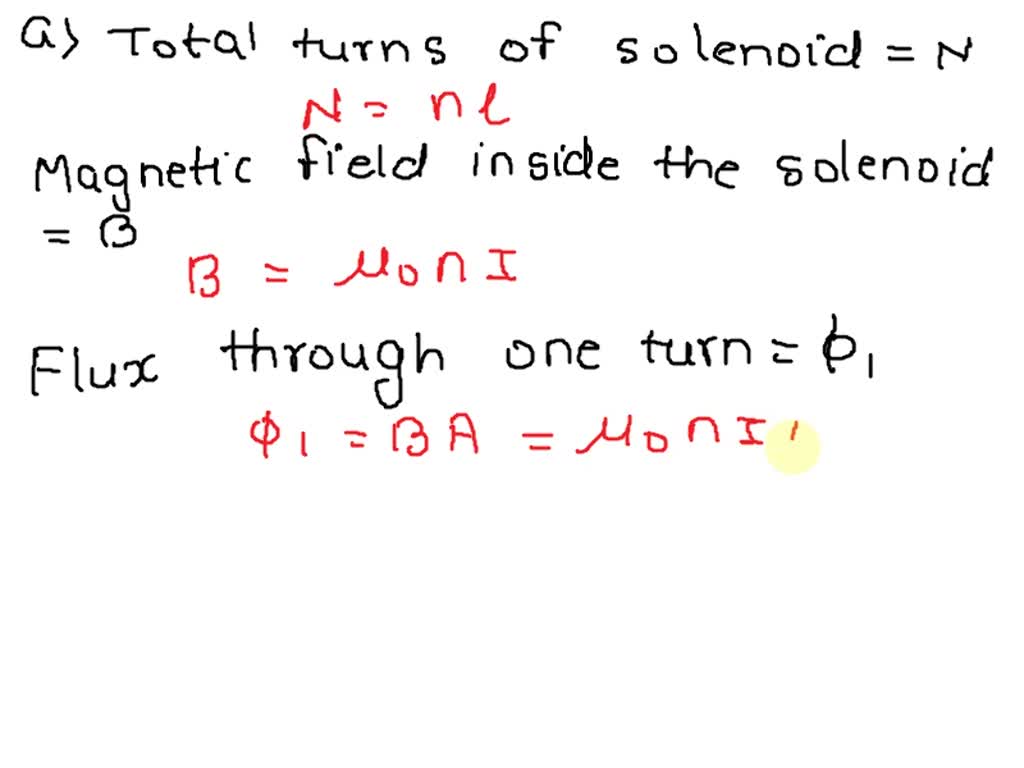 a) Total turns of solenoid = N
N = nl
Magnetic field inside the solenoid
= B
B = μ₀ n I
Flux through one turn = ϕ₁
ϕ₁ = BA = μ₀ n I